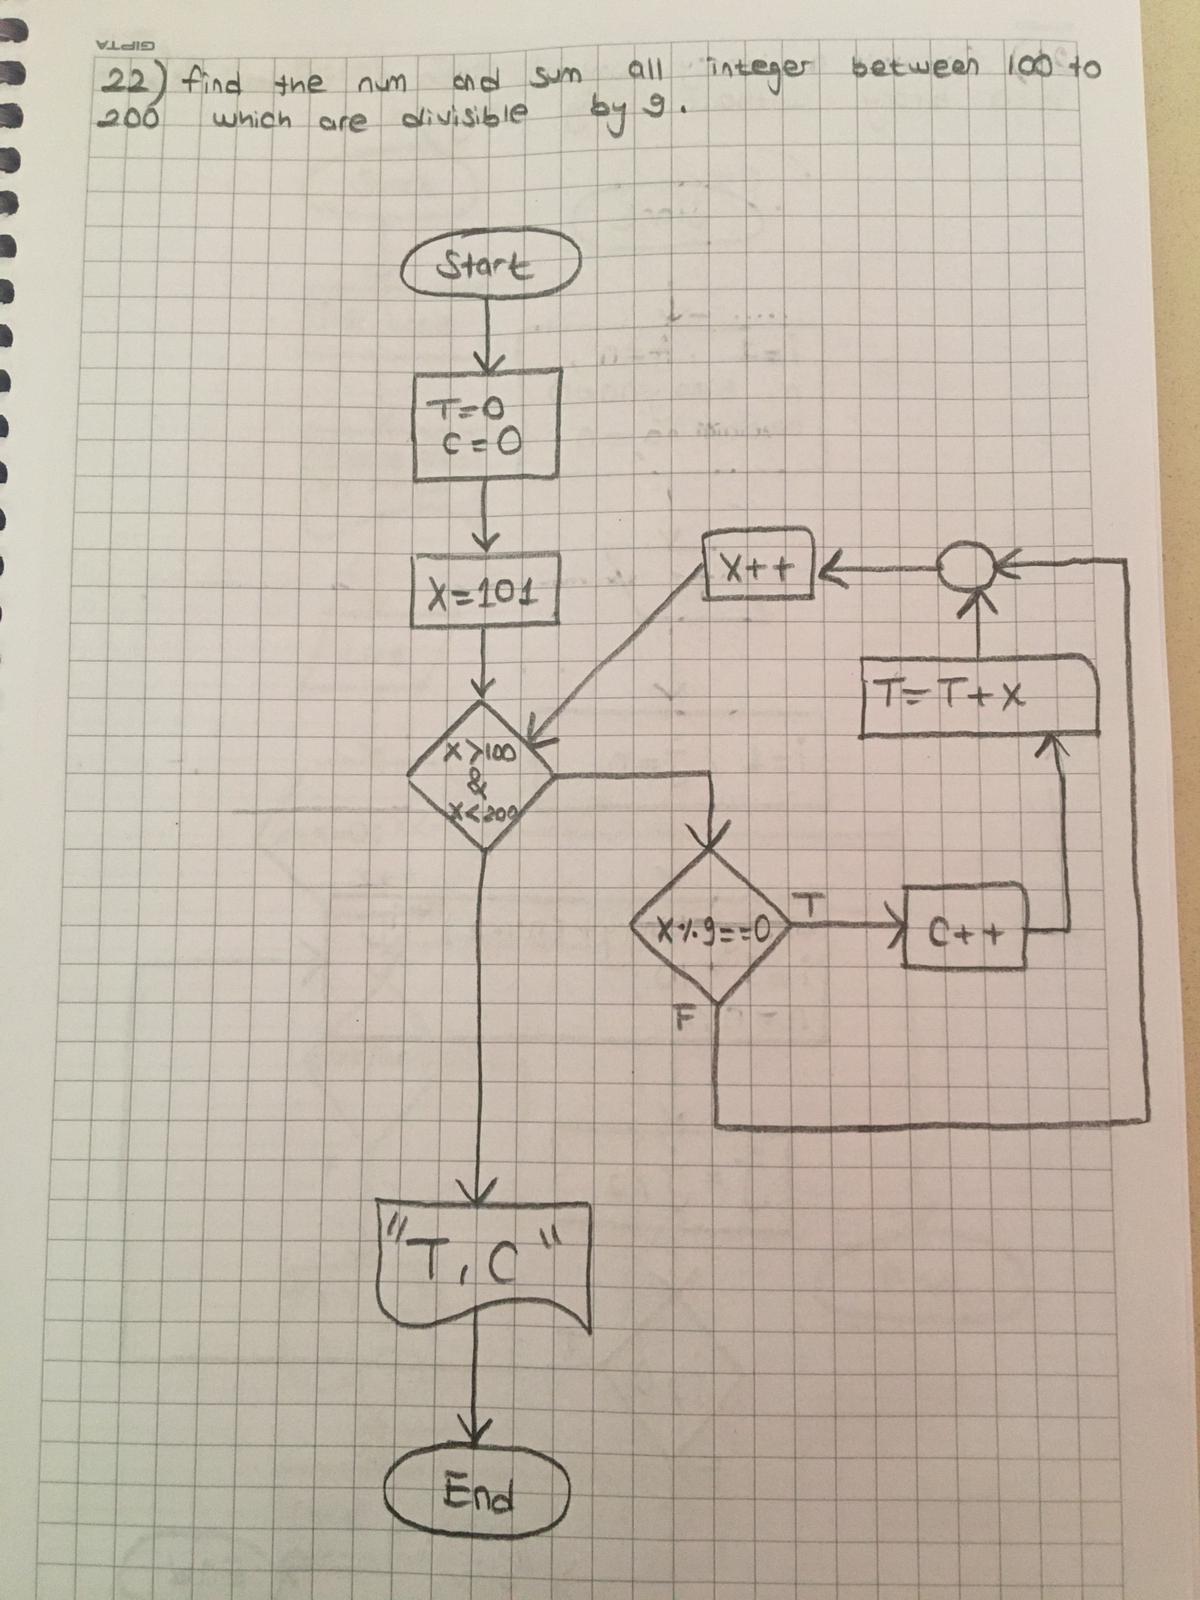 GIPTA
22) find the num and sum all integer between 100 to
200 which are divisible by 9.
Start
T=0
C=0
X=101
X++
T=T+X
X>100
&
X<200
X%9==0
T
C++
F
"T, C"
End